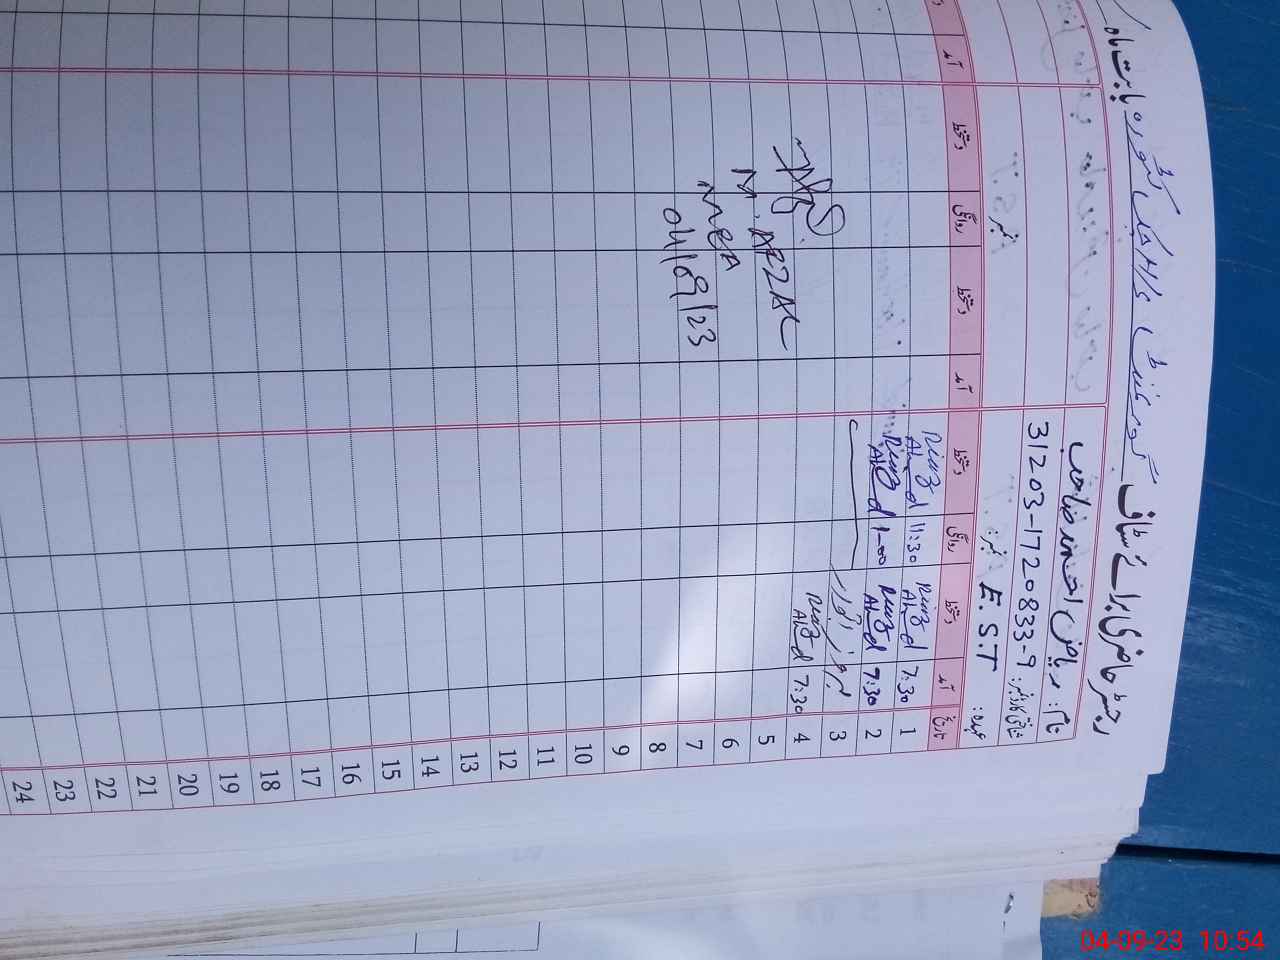 رجسٹر حاضری برائے سٹاف گورنمنٹ
بابت ماہ
نام: ریاض احمد صاحب
شناختی کارڈ نمبر: 31203-1720833-9
عہدہ: E.S.T نمبر:
نمبر
تاریخ آمد دستخط روانگی دستخط آمد دستخط روانگی دستخط آمد
1 7:30 Riaz Ahmad 11:30 Riaz Ahmad
2 7:30 Riaz Ahmad 1-00 Riaz Ahmad
3 بروز اتوار
4 7:30 Riaz Ahmad
5
6
7
8
9
10
11
12
13
14
15
16
17
18
19
20
21
22
23
24
M. AFZAL
MEA
04/09/23
04-09-23 10:54